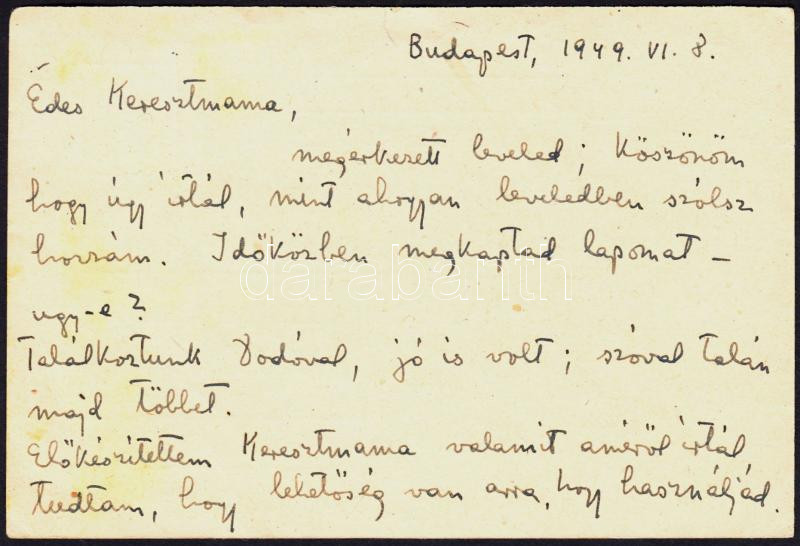 Budapest, 1949. VI. 8.
Édes Keresztmama,
megérkezett leveled; Köszönöm
hogy úgy írtál, mint ahogyan leveledben szólsz
hozzám. Időközben megkaptad lapomat –
ugy-e?
Találkoztunk Dodóval, jó is volt; szóval talán
majd többet.
Előkészítettem Keresztmama valamit amiről írtál
tudtam, hogy lehetőség van arra, hogy használjád.
darabanth